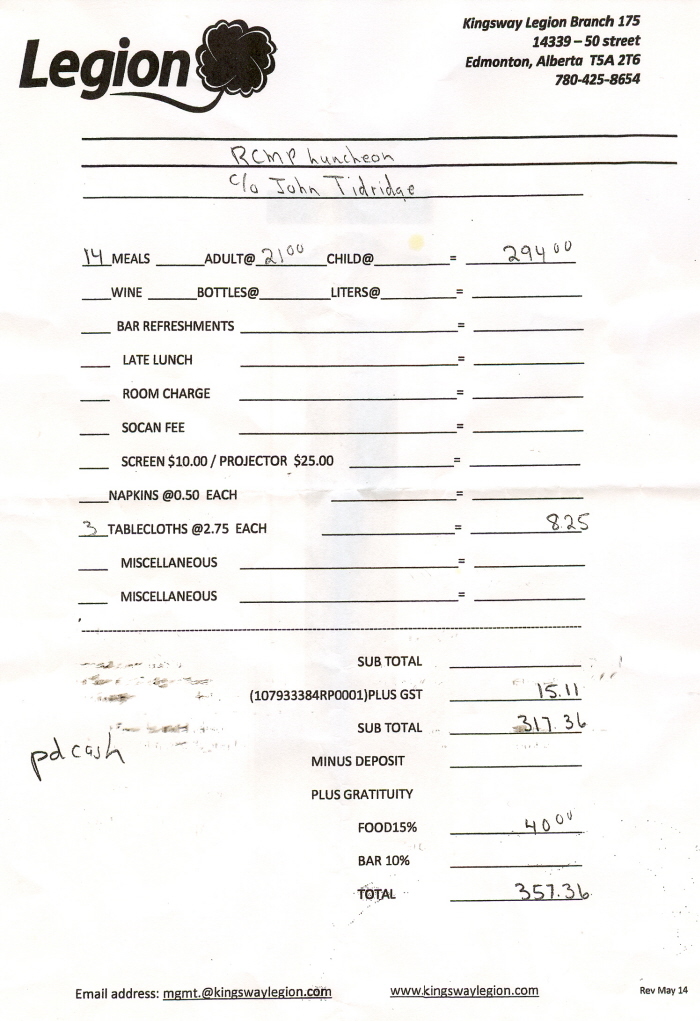 Legion
Kingsway Legion Branch 175
14339 – 50 street
Edmonton, Alberta T5A 2T6
780-425-8654
RCMP Luncheon
c/o John Tidridge
14 MEALS ADULT@ 21 00 CHILD@ = 294 00
WINE BOTTLES@ LITERS@ =
BAR REFRESHMENTS =
LATE LUNCH =
ROOM CHARGE =
SOCAN FEE =
SCREEN $10.00 / PROJECTOR $25.00 =
NAPKINS @0.50 EACH =
3 TABLECLOTHS @2.75 EACH = 8.25
MISCELLANEOUS =
MISCELLANEOUS =
SUB TOTAL
(107933384RP0001)PLUS GST 15.11
SUB TOTAL 317.36
pd cash
MINUS DEPOSIT
PLUS GRATITUITY
FOOD15% 40 00
BAR 10%
TOTAL 357.36
Email address: mgmt.@kingswaylegion.com www.kingswaylegion.com Rev May 14